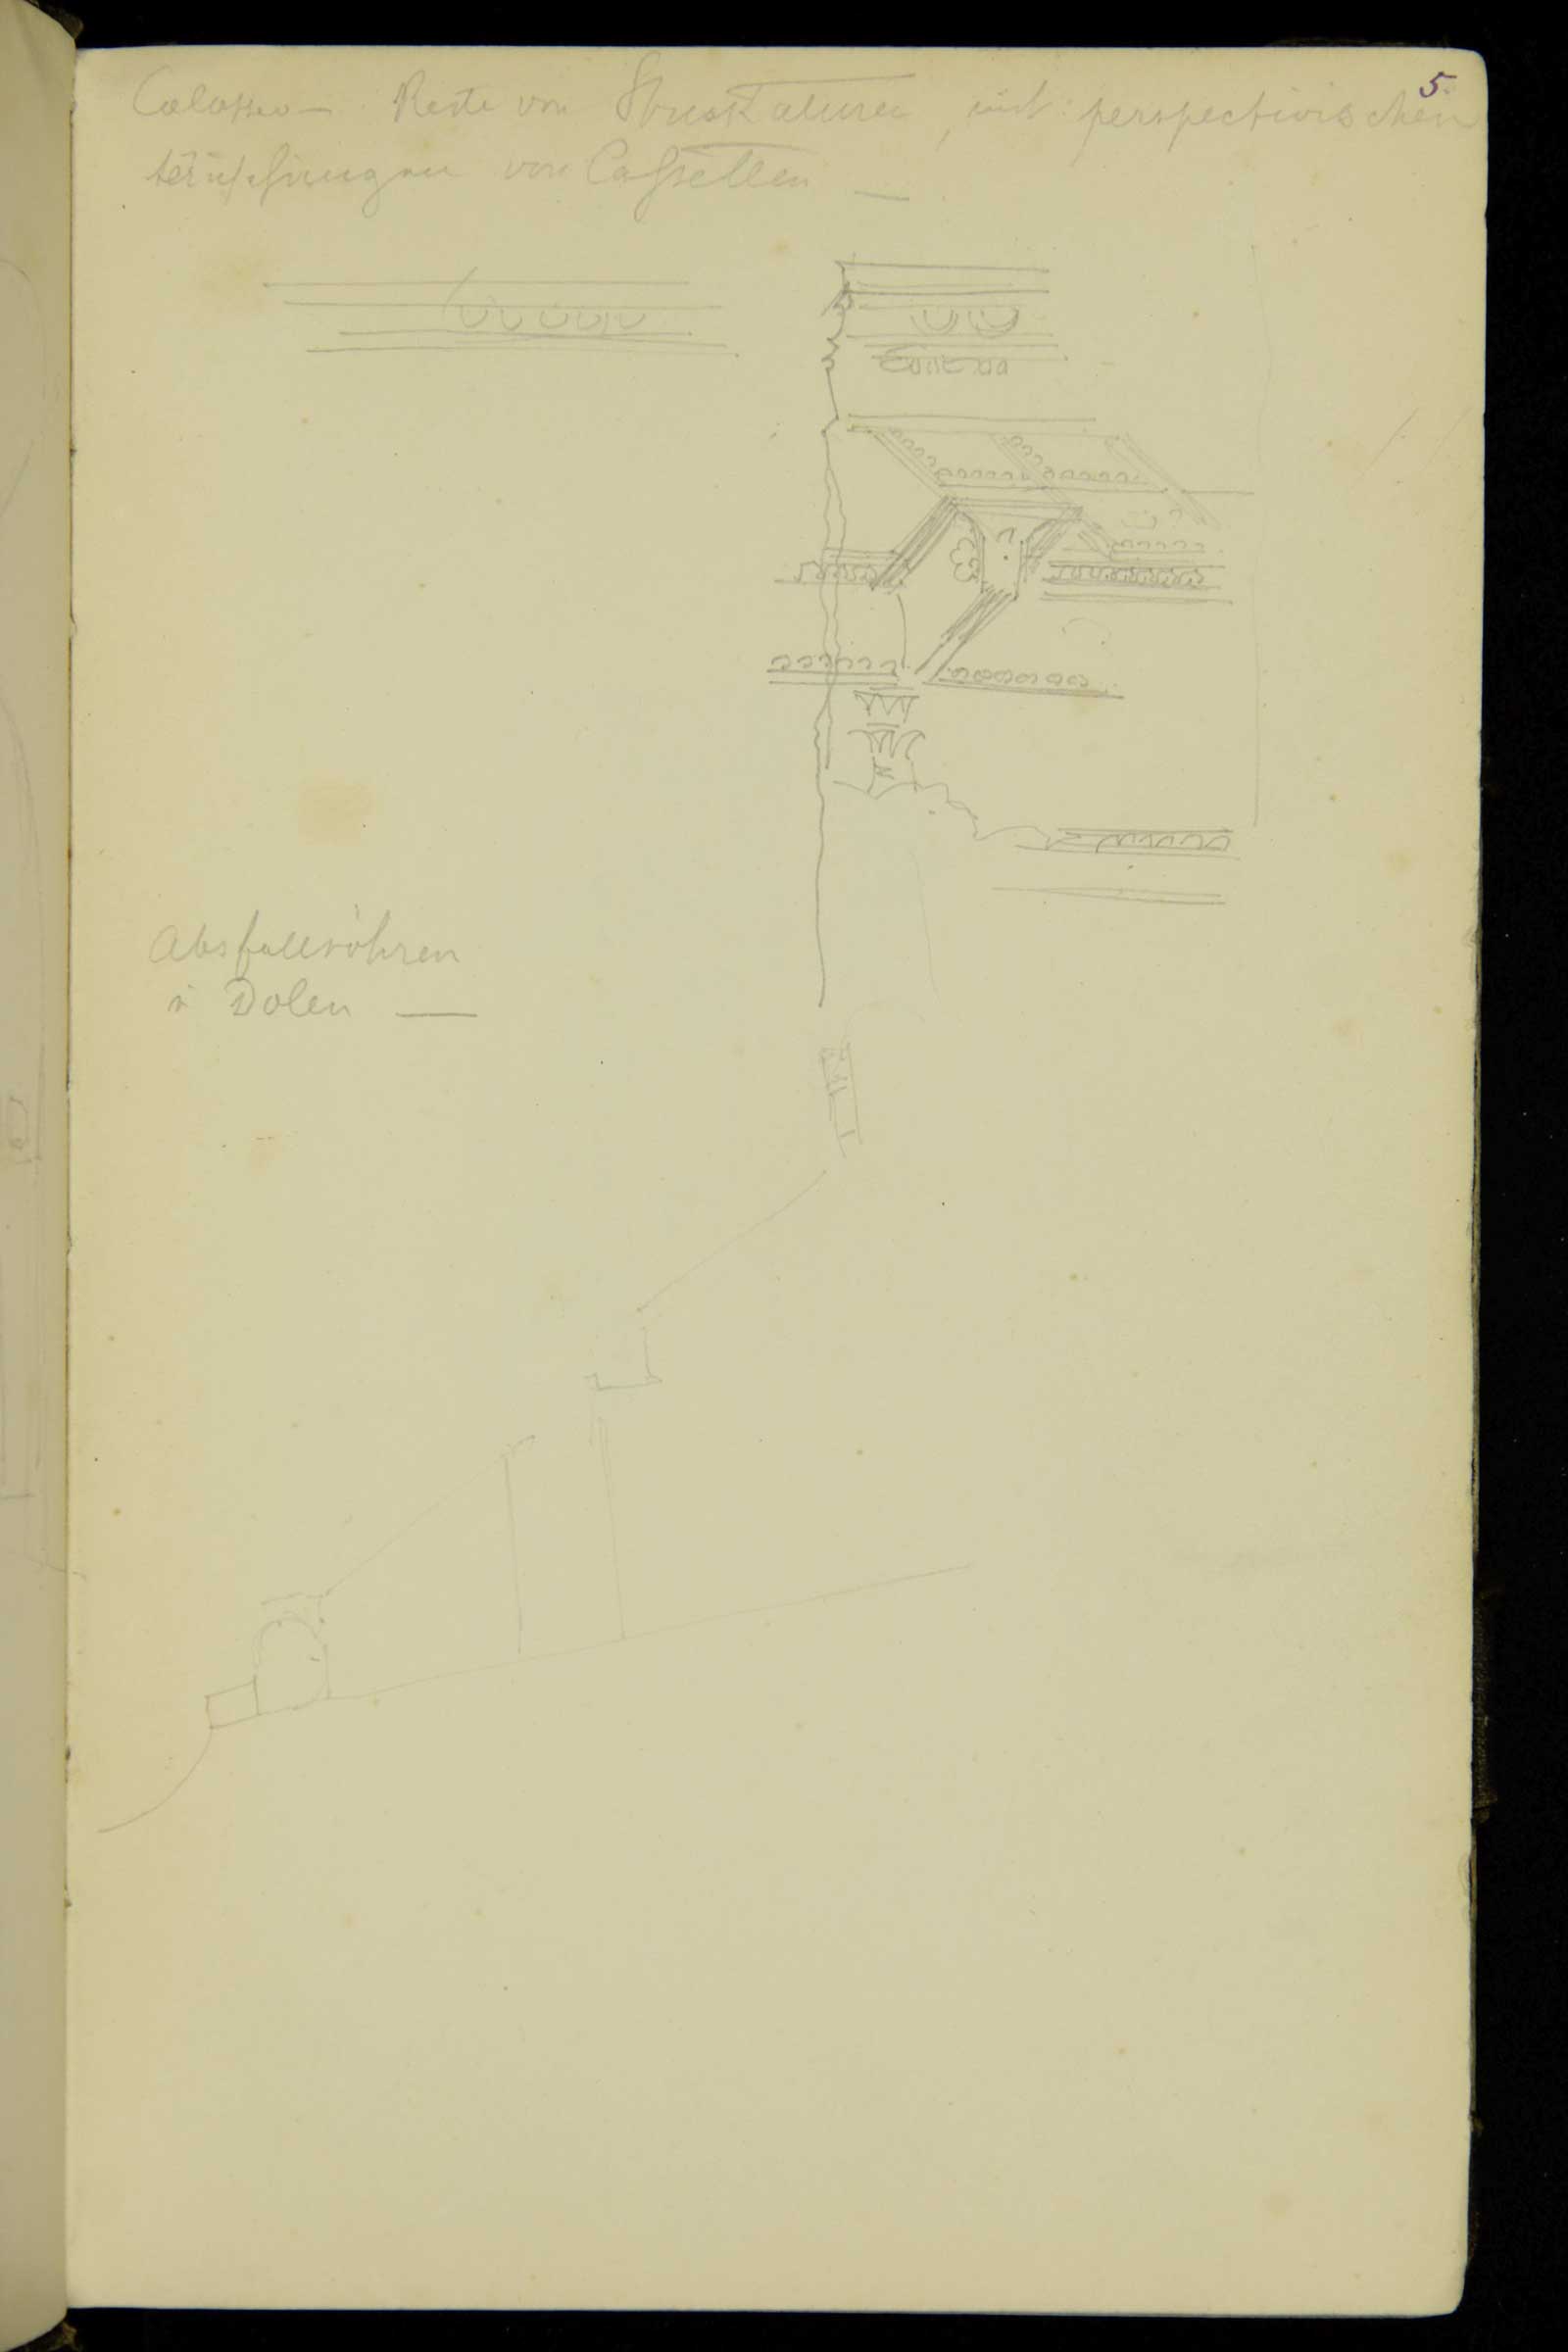 5.
Colosseo — Reste von Stuckaturen, mit perspectivischen
von Cassetten —
Abfallröhren
Dolen —